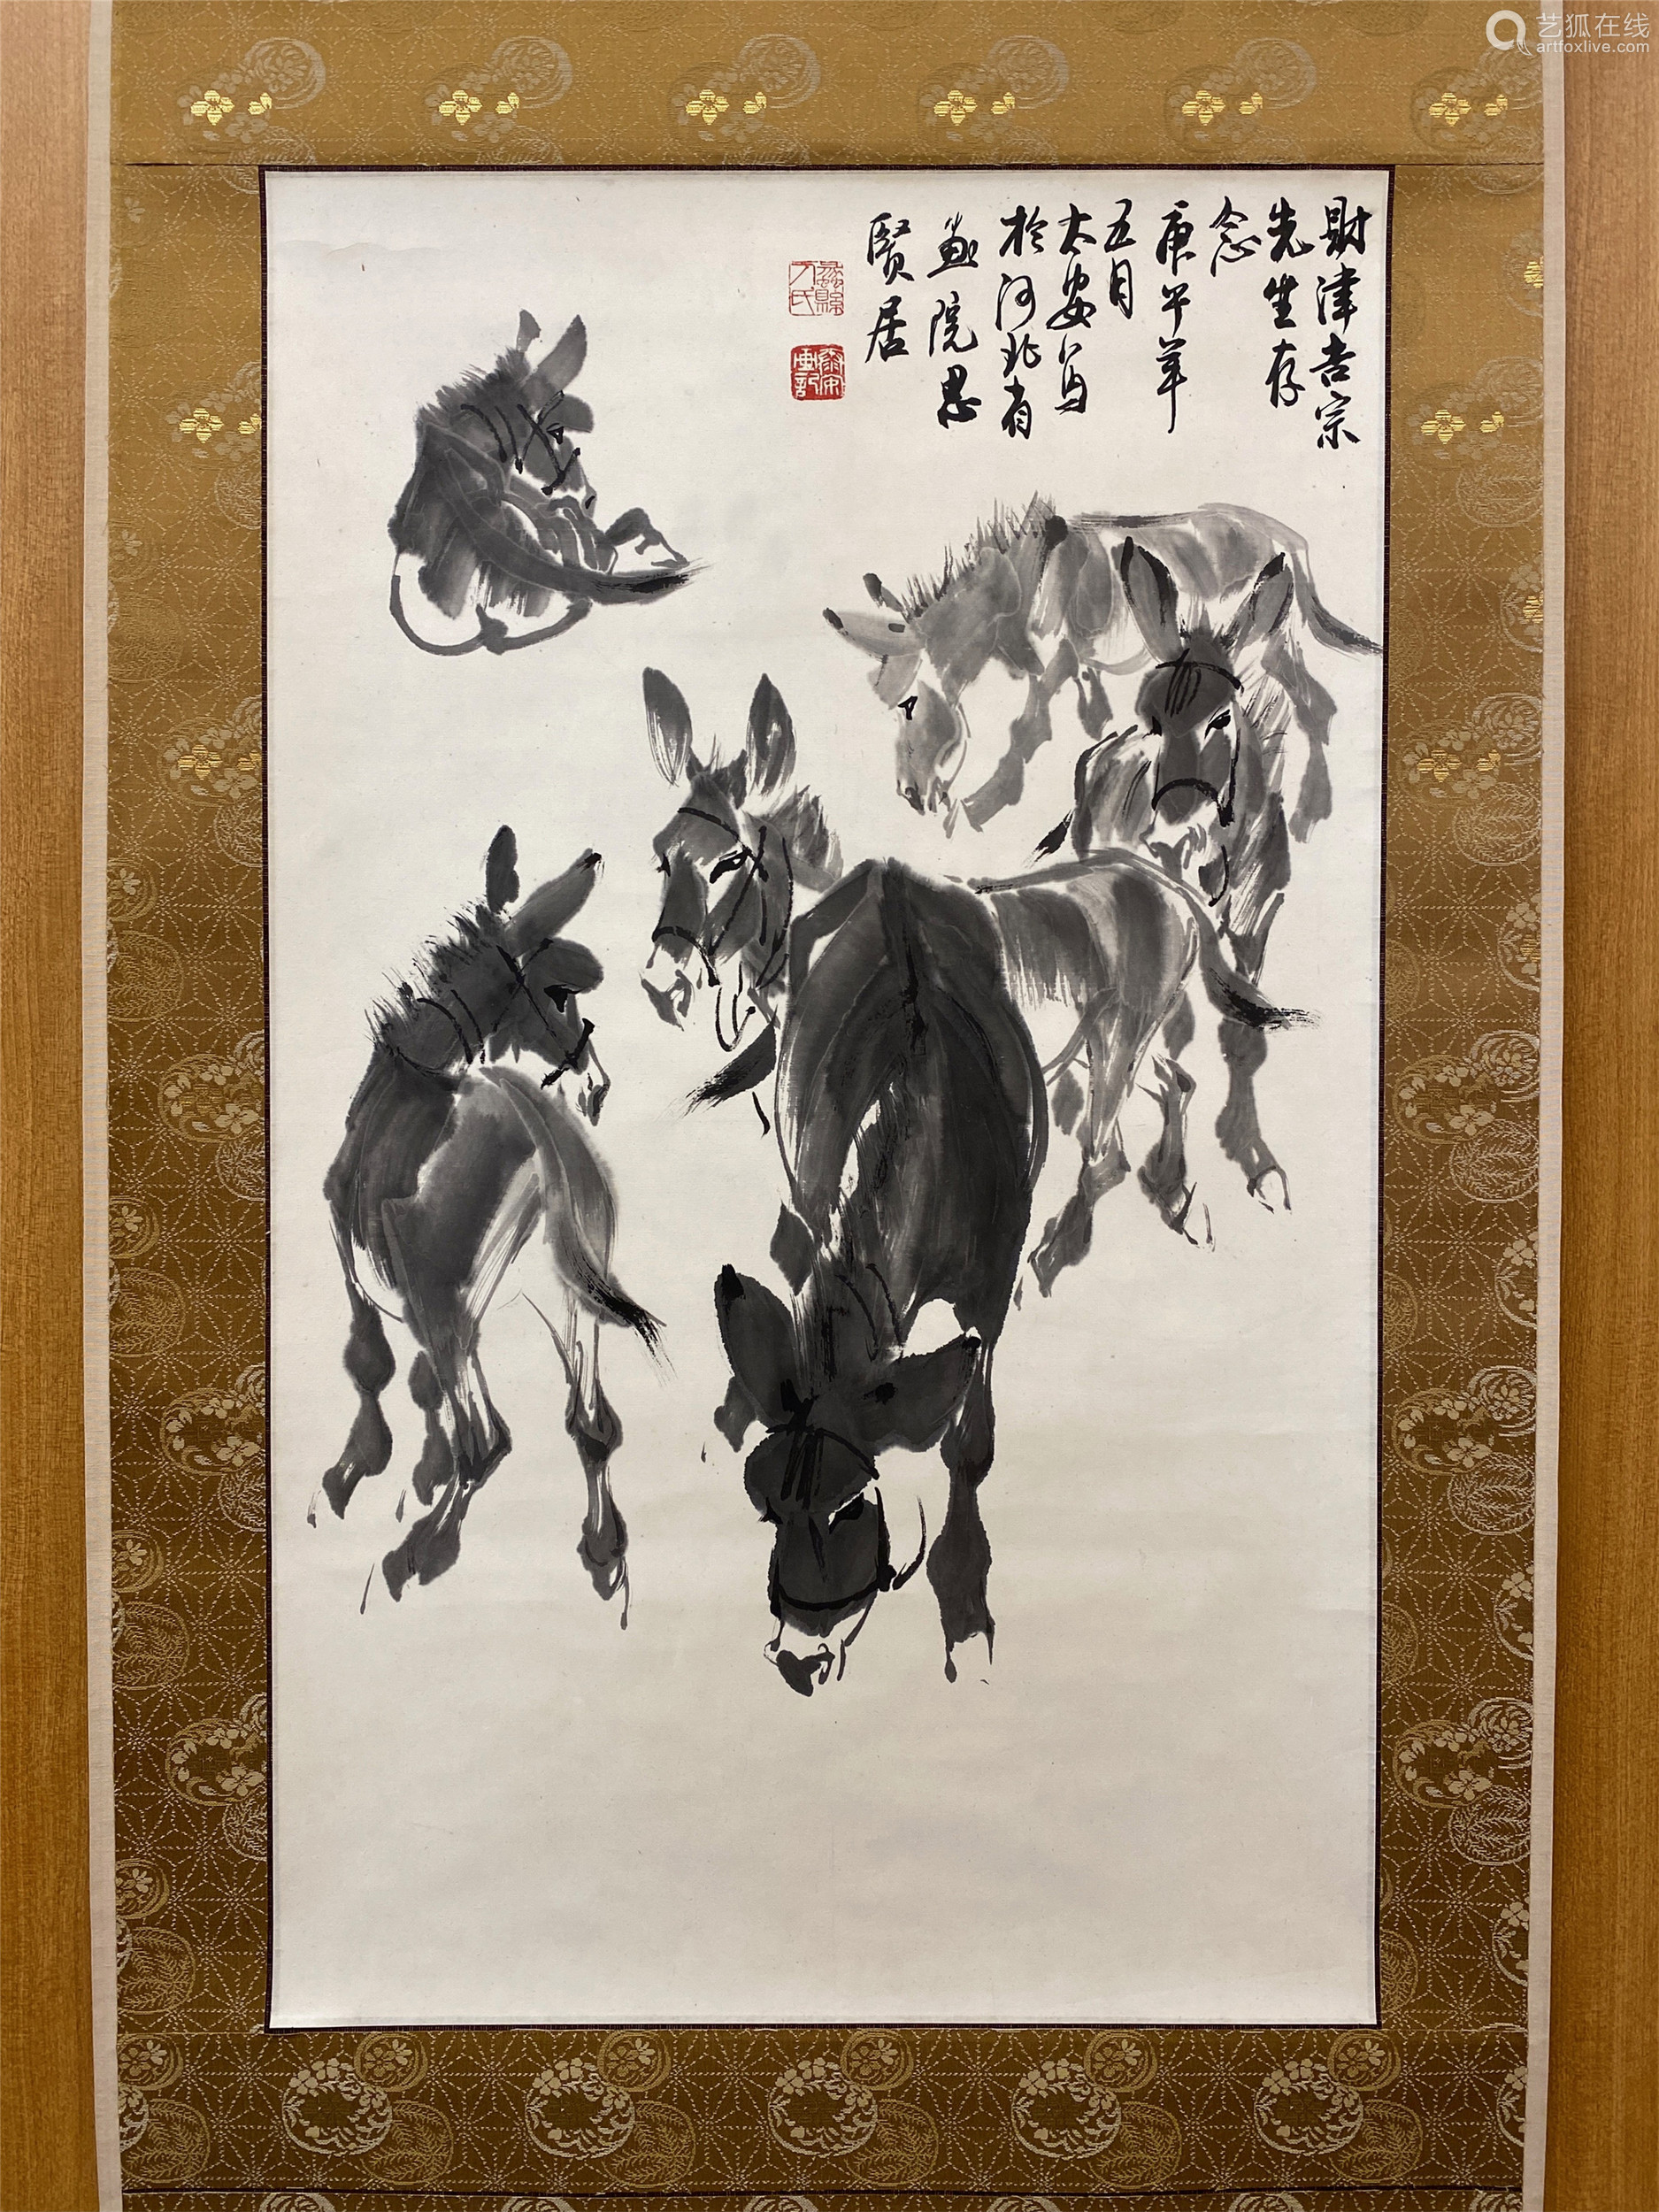 艺狐在线
artfoxlive.com
財津吉宗
先生存
念
庚午年
五月
大安
於河北省
画院思
賢居
蠡縣
方氏